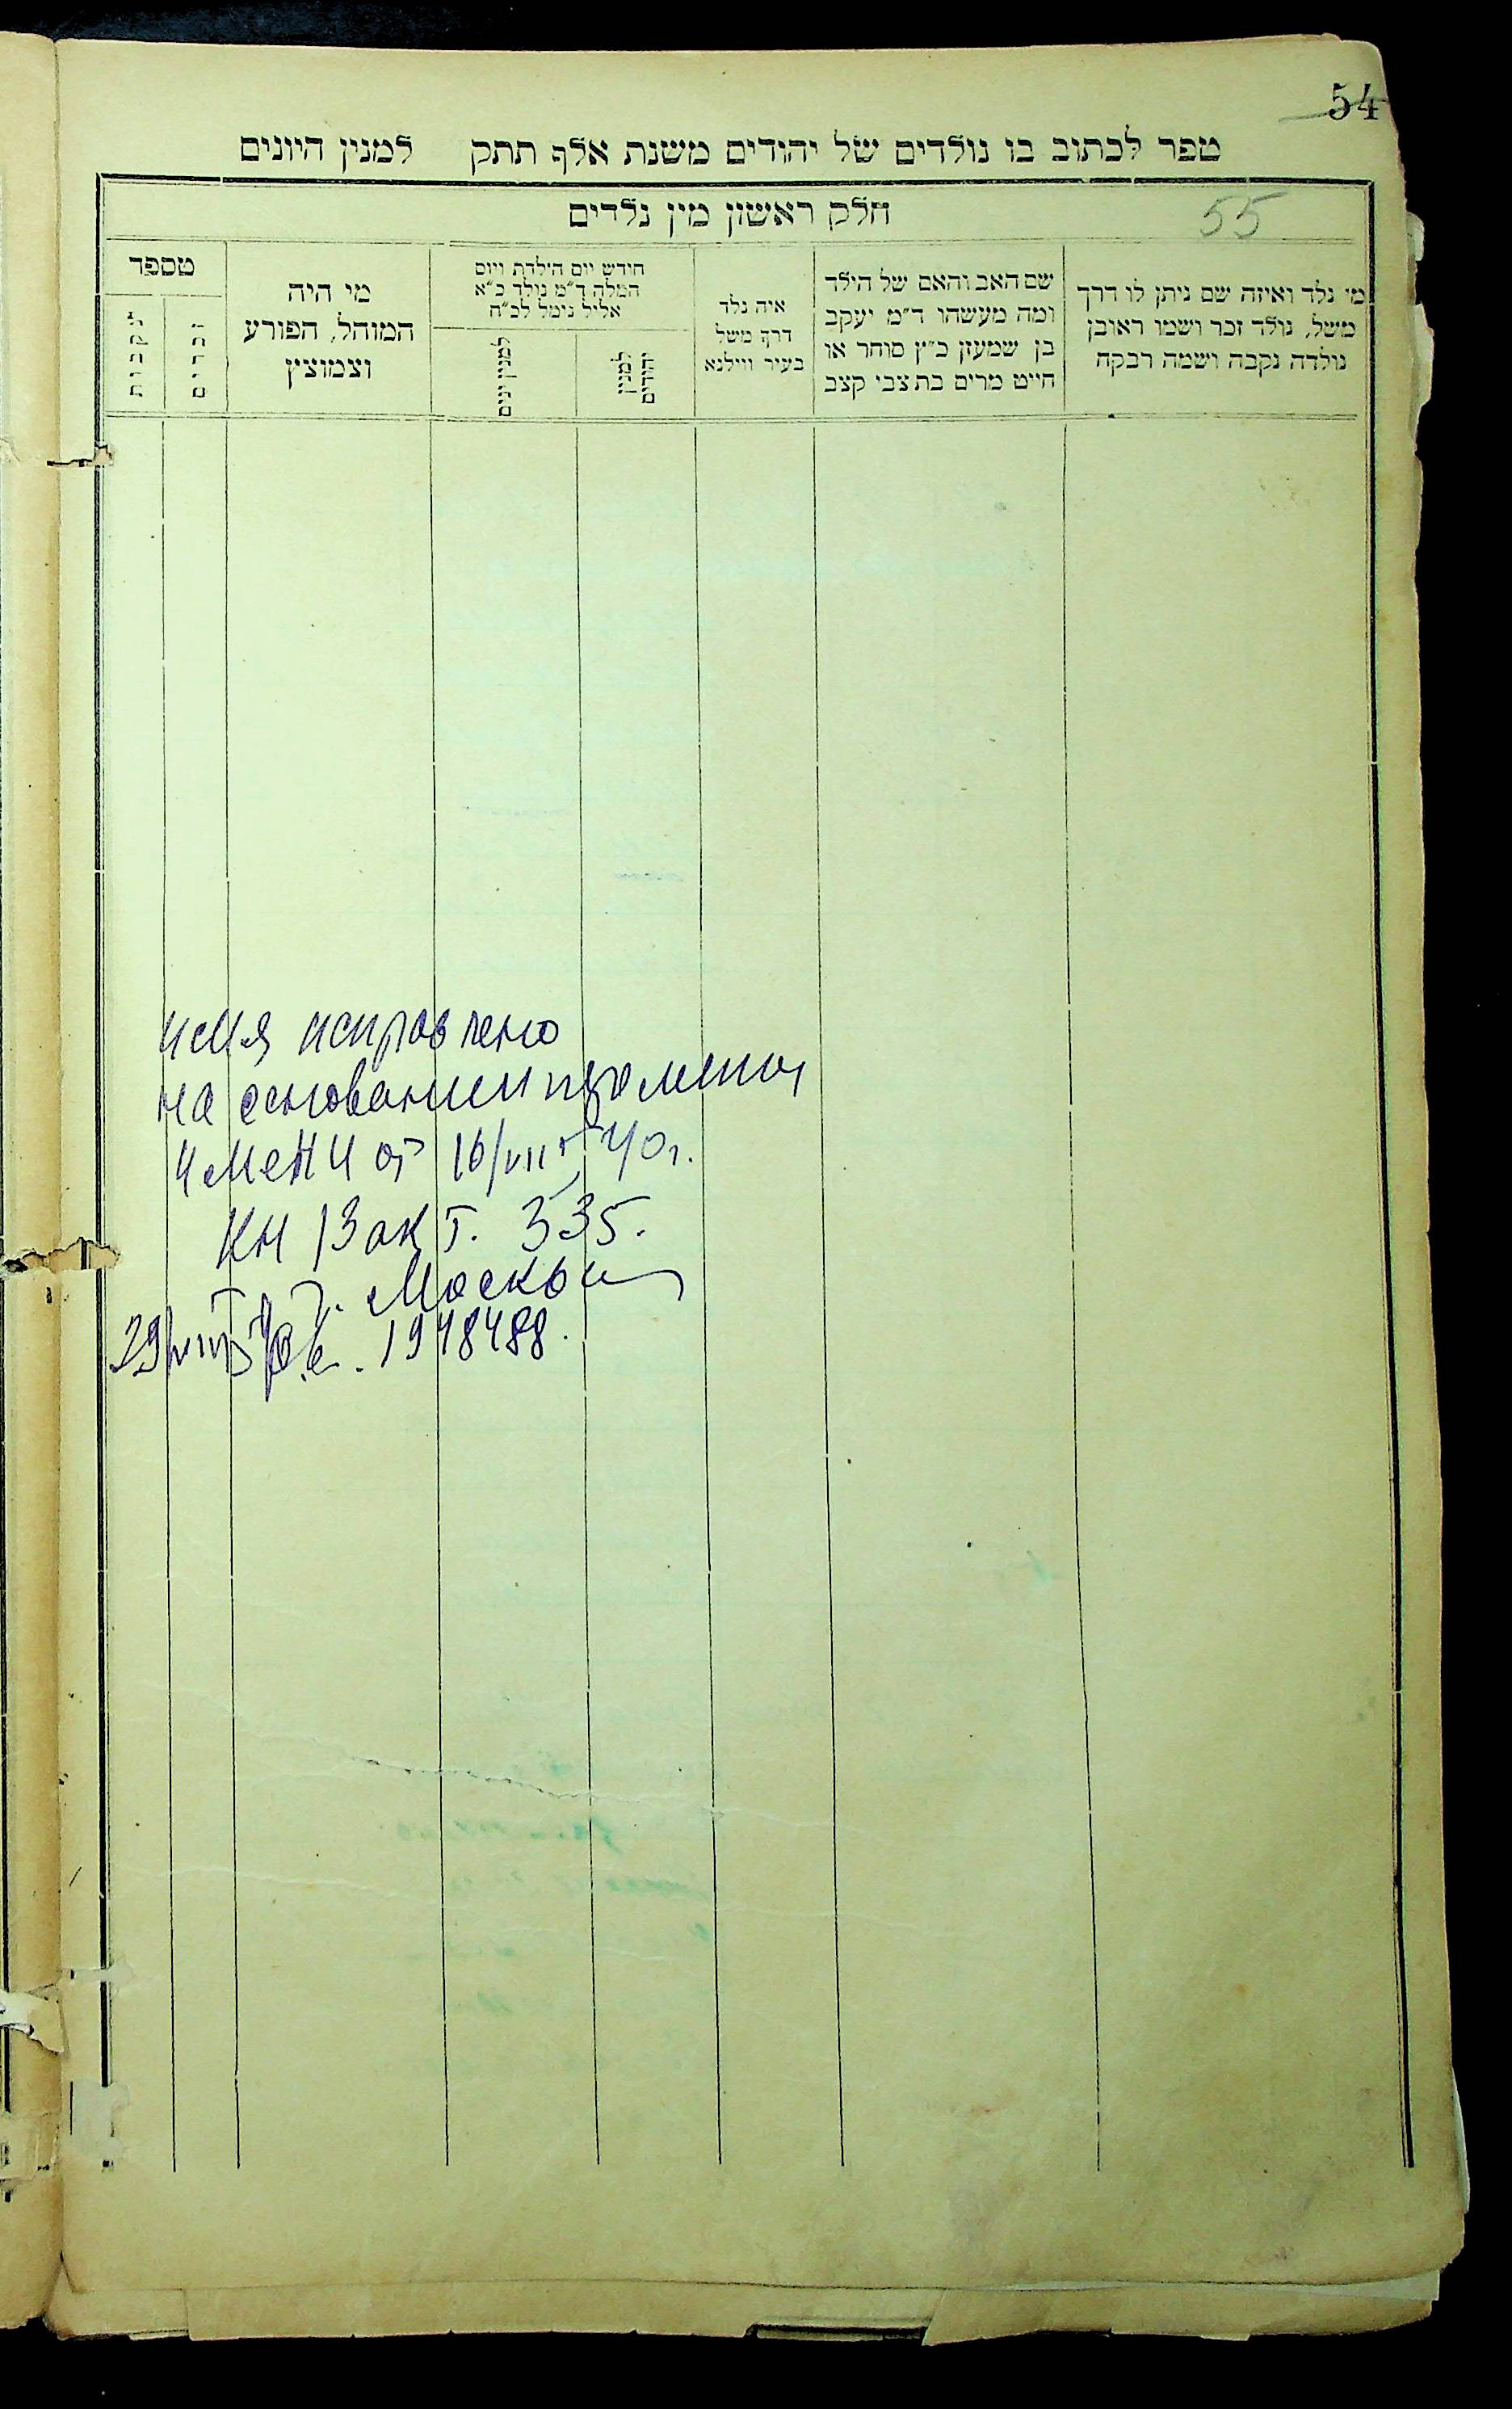 54
ספר לכתוב בו נולדים של יהודים משנת אלף תתק למנין היונים
חלק ראשון מין נלדים
55
מי נלד ואיזה שם ניתן לו דרך
משל, נולד זכר ושמו ראובן
נולדה נקבה ושמה רבקה
שם האב והאם של הילד
ומה מעשהו ד״מ יעקב
בן שמעון כ״ץ סוחר או
חייט מרים בת צבי קצב
איה נלד
דרך משל
בעיר ווילנא
חודש יום הילדת ויום
המלה ד״מ נולד כ״א
אליל נימל לכ״ח
למנין יהודים
למנין ינים
מי היה
המוהל, הפורע
וצמוצץ
מספר
זכרים
נקבות
имя исправлено
на основании
имени от 16/VIII 40 г.
КН 13 акт. 335.
г. Москвы
29/VIII 1948488.